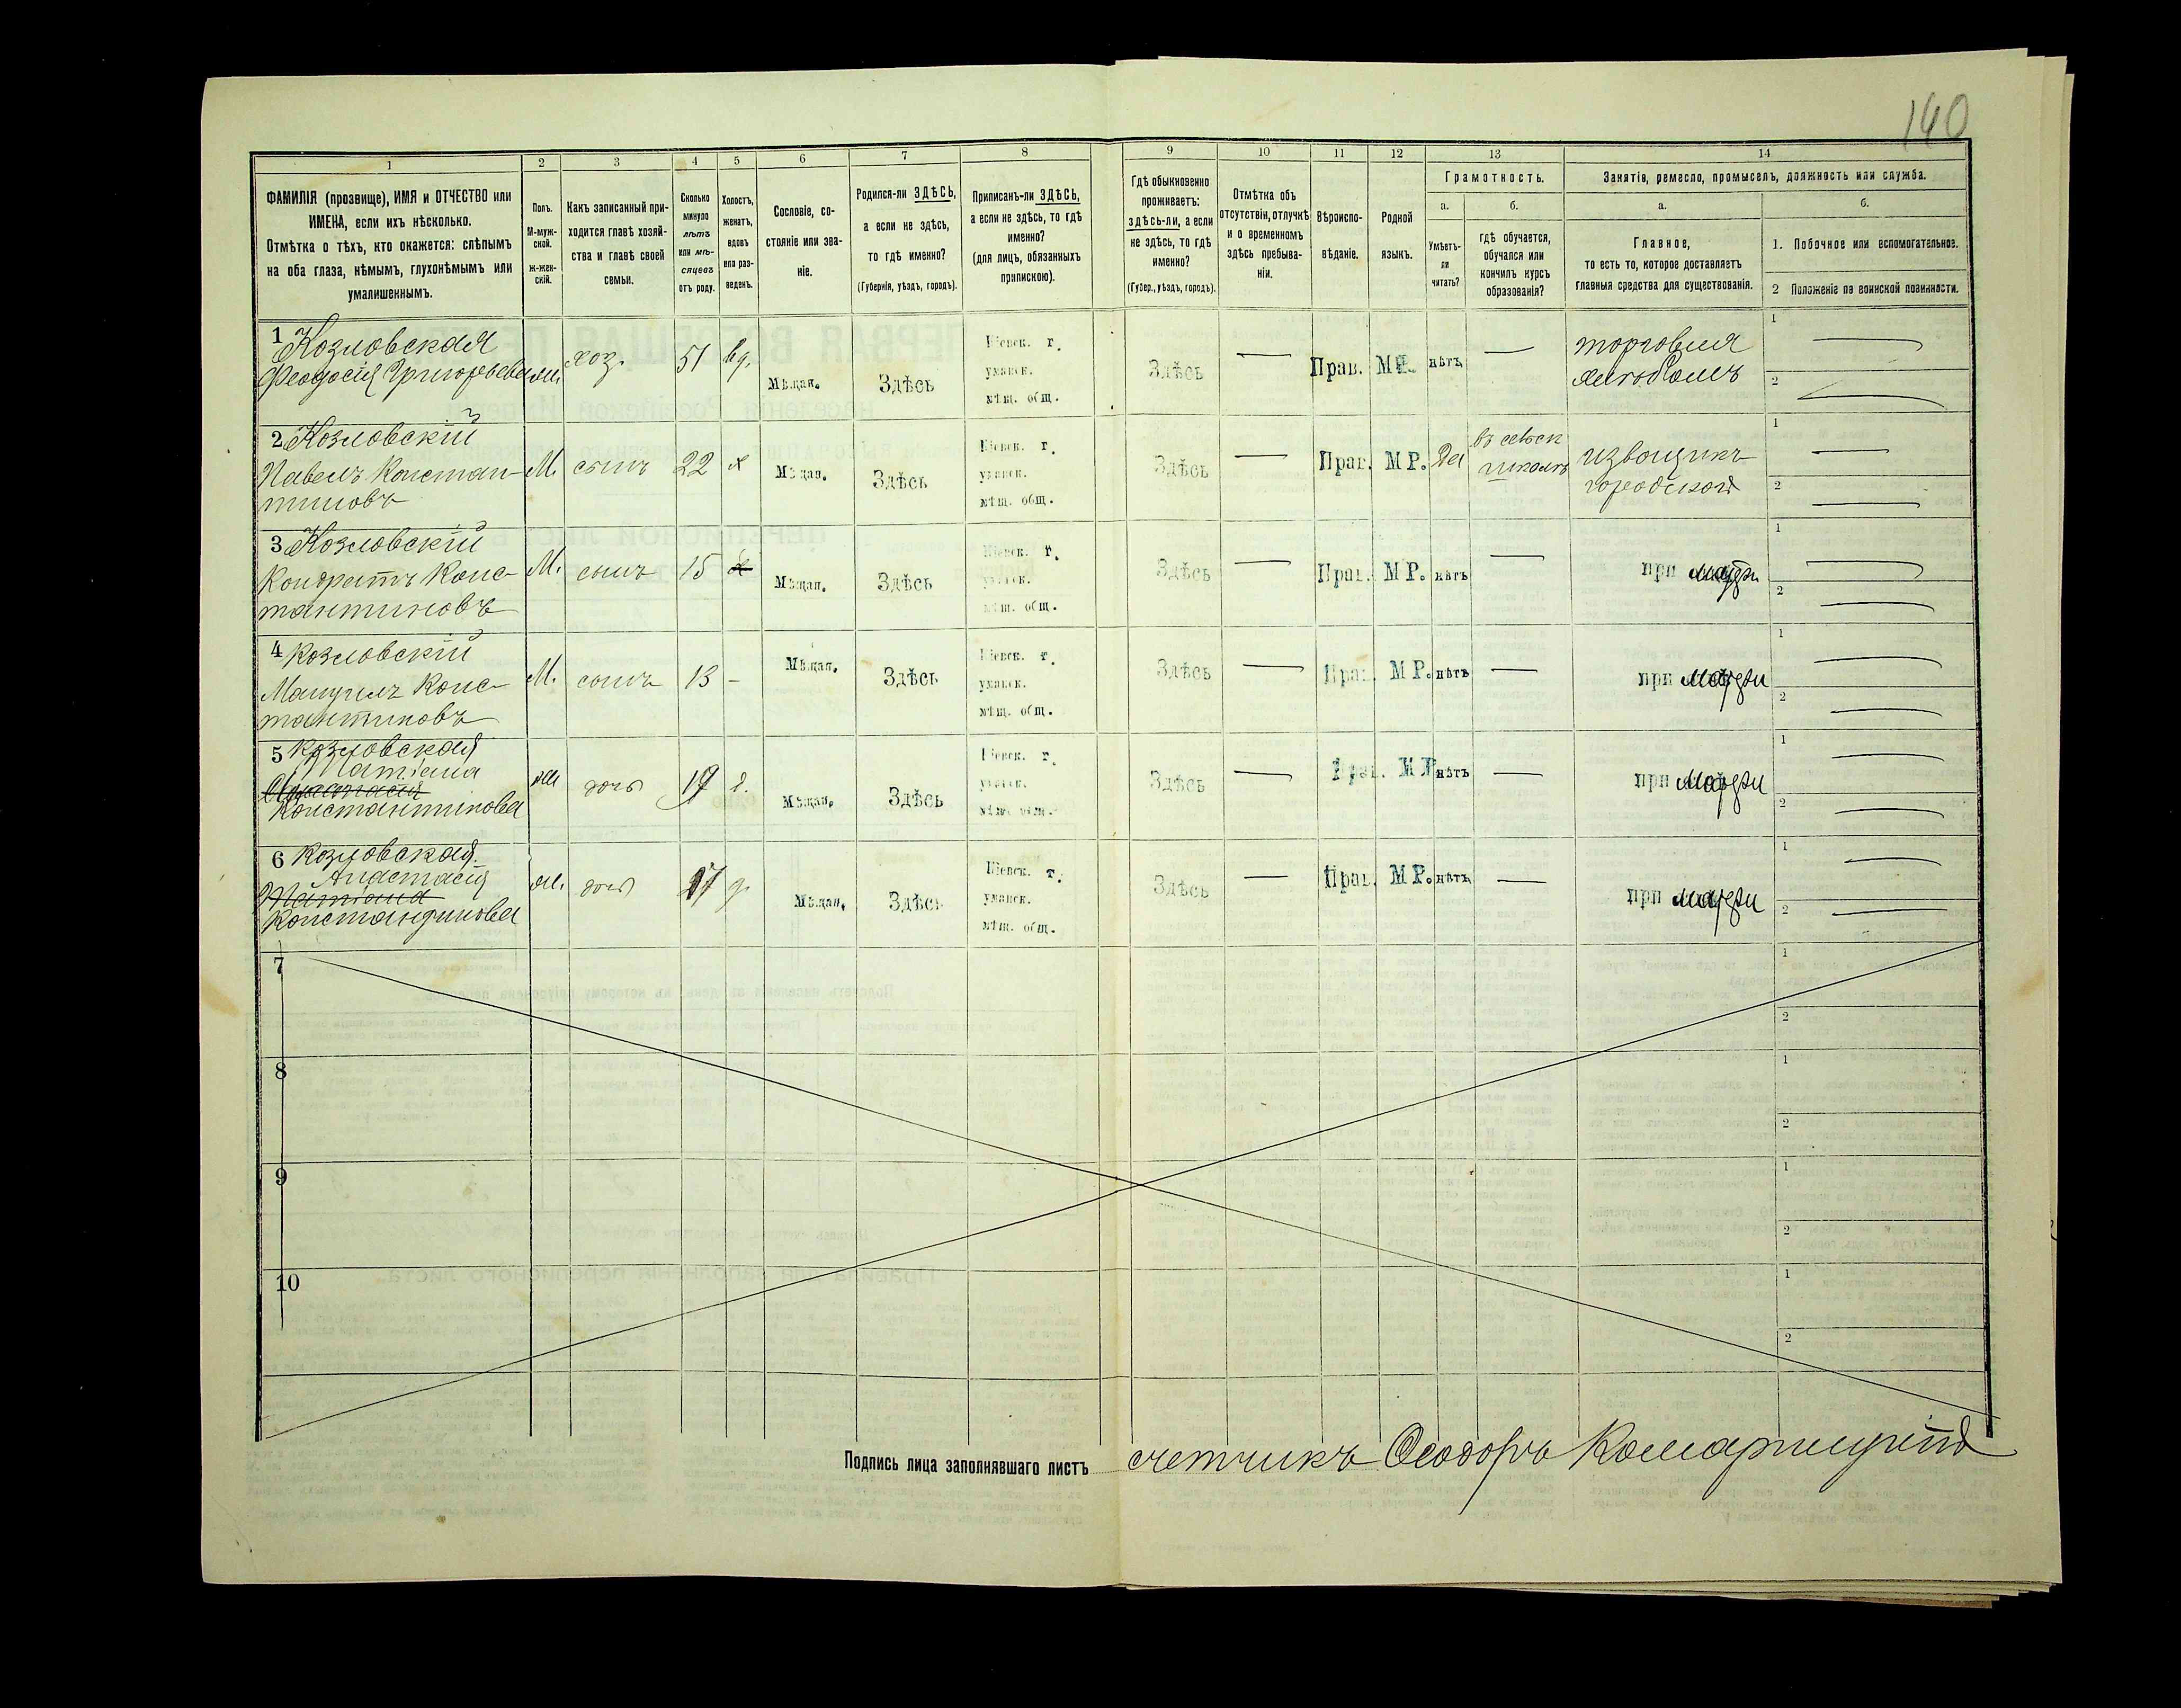 140
1
2
3
4
5
6
7
8
9
10
11
12
13
14
ФАМИЛІЯ (прозвище), ИМЯ и ОТЧЕСТВО или
ИМЕНА, если ихъ нѣсколько.
Отмѣтка о тѣхъ, кто окажется: слѣпымъ
на оба глаза, нѣмымъ, глухонѣмымъ или
умалишеннымъ.
Полъ.
М-муж-
ской.
ж-жен-
скій.
Какъ записанный при-
ходится главѣ хозяй-
ства и главѣ своей
семьи.
Сколько
минуло
лѣтъ
или мѣ-
сяцевъ
отъ роду.
Холостъ,
женатъ,
вдовъ
или раз-
веденъ.
Сословіе, со-
стояніе или зва-
ніе.
Родился-ли ЗДѢСЬ,
а если не здѣсь,
то гдѣ именно?
(Губернія, уѣздъ, городъ).
Приписанъ-ли ЗДѢСЬ,
а если не здѣсь, то гдѣ
именно?
(для лицъ, обязанныхъ
припискою).
Гдѣ обыкновенно
проживаетъ:
здѣсь-ли, а если
не здѣсь, то гдѣ
именно?
(Губер., уѣздъ, городъ).
Отмѣтка объ
отсутствіи, отлучкѣ
и о временномъ
здѣсь пребыва-
ніи.
Вѣроиспо-
вѣданіе.
Родной
языкъ.
Грамотность.
а.
Умѣетъ-
ли
читать?
б.
гдѣ обучается,
обучался или
кончилъ курсъ
образованія?
Занятіе, ремесло, промыселъ, должность или служба.
а.
Главное,
то есть то, которое доставляетъ
главныя средства для существованія.
б.
1. Побочное или вспомогательное.
2 Положеніе по воинской повинности.
1 Козловская
Феодосія Григорьева
хоз.
51
вд.
Мѣщан.
Здѣсь
Кіевск. г.
уманск.
мѣщ. общ.
Здѣсь
—
Прав.
нѣтъ
—
торговля
1
2
2 Козловскій
Павелъ Констан-
тиновъ
М.
сынъ
22
х
Мѣщан.
Здѣсь
Кіевск. г.
уманск.
мѣщ. общ.
Здѣсь
—
Прав.
МР.
Да
въ сельск
школѣ
извощикъ
городской
1
2
3 Козловскій
Кондратъ Конс-
тантиновъ
М.
сынъ
15
Мѣщан.
Здѣсь
Кіевск. г.
уманск.
мѣщ. общ.
Здѣсь
—
Прав.
МР.
нѣтъ
—
при матери
1
2
4 Козловскій
Мануилъ Конс-
тантиновъ
М.
сынъ
13
-
Мѣщан.
Здѣсь
Кіевск. г.
уманск.
мѣщ. общ.
Здѣсь
—
Прав.
МР.
нѣтъ
—
при матери
1
2
5 Козловская
Татіана
Анастасія
Константинова
ж
дочь
19
д.
Мѣщан.
Здѣсь
Кіевск. г.
уманск.
мѣщ. общ.
Здѣсь
—
Прав.
МР
нѣтъ
—
при матери
1
2
6 Козловская
Анастасія
Татіана
Константинова
ж.
дочь
17
д.
Мѣщан.
Здѣсь
Кіевск. г.
уманск.
мѣщ. общ.
Здѣсь
—
Прав.
МР.
нѣтъ
—
при матери
1
2
7
1
2
8
1
2
9
1
2
10
1
2
Подпись лица заполнявшаго листъ счетчикъ Ѳеодоръ Комарницкій